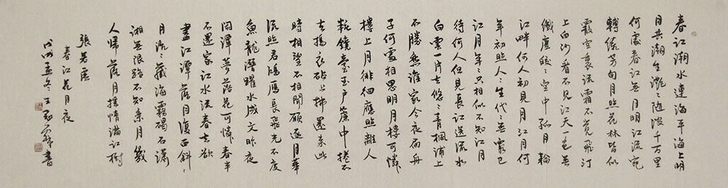 春江潮水連海平海上明
月共潮生灩灩隨波千万里
何處春江無月明江流宛
轉繞芳甸月照花林皆似
霰空裏流霜不覺飛汀
上白沙看不見江天一色無
纖塵皎皎空中孤月輪
江畔何人初見月江月何
年初照人人生代代無窮已
江月年年只相似不知江月
待何人但見長江送流水
白雲一片去悠悠青楓浦上
不勝愁誰家今夜扁舟
子何處相思明月樓可憐
樓上月徘徊應照離人
妝鏡臺玉戶簾中捲不
去搗衣砧上拂還來此
時相望不相聞願逐月華
流照君鴻雁長飛光不度
魚龍潛躍水成文昨夜
閒潭夢落花可憐春半
不還家江水流春去欲
盡江潭落月復西斜斜
月沉沉藏海霧碣石瀟
湘無限路不知乘月幾
人歸落月搖情滿江樹
張若虛
春江花月夜
孟冬 書